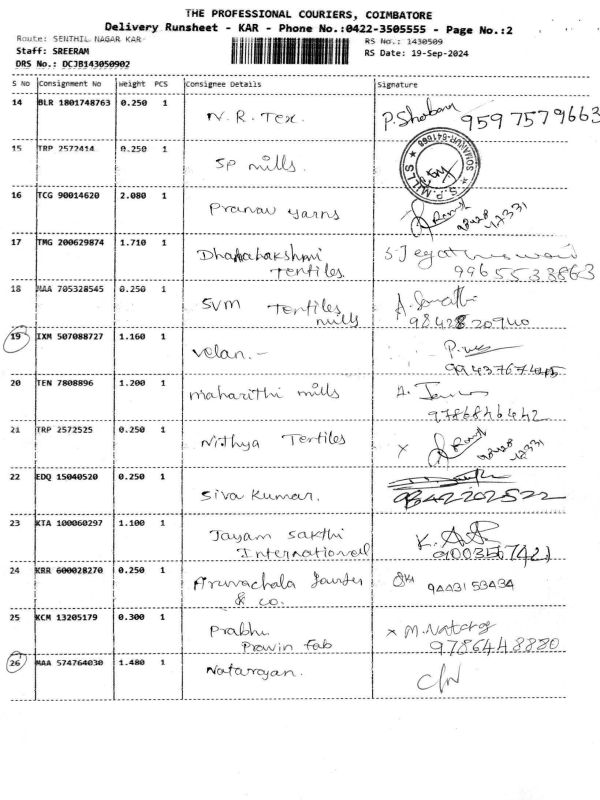 THE PROFESSIONAL COURIERS, COIMBATORE
Delivery Runsheet - KAR - Phone No.:0422-3505555 - Page No.:2
Route: SENTHIL NAGAR KAR-
RS No.: 1430509
Staff: SREERAM
RS Date: 19-Sep-2024
DRS No.: DCJB143050902
S No Consignment No Weight PCS Consignee Details Signature
14 BLR 1801748763 0.250 1 N.R. Tex. P. Shoban 9597579663
15 TRP 2572414 0.250 1 SP mills. S.P. MILLS SOMANUR-641668
16 TCG 90014620 2.080 1 Pranav yarns
17 TMG 200629874 1.710 1 Dhanalakshmi
Textiles. 9965533863
18 MAA 705328545 0.250 1 SVM Textiles
mills 9842820940
19 IXM 507088727 1.160 1 Velan.-
20 TEN 7808896 1.200 1 maharithi mills
9786846442
21 TRP 2572525 0.250 1 Nithya Textiles x
22 EDQ 15040520 0.250 1 Siva Kumar. 9842202522
23 KTA 100060297 1.100 1 Jayam Sakthi
International 9003567421
24 KRR 600028270 0.250 1 Arunachala
& co. 9443153434
25 KCM 13205179 0.300 1 Prabhu x M. Nataraj
Prawin Fab 9786448880
26 MAA 574764030 1.480 1 Natarayan.